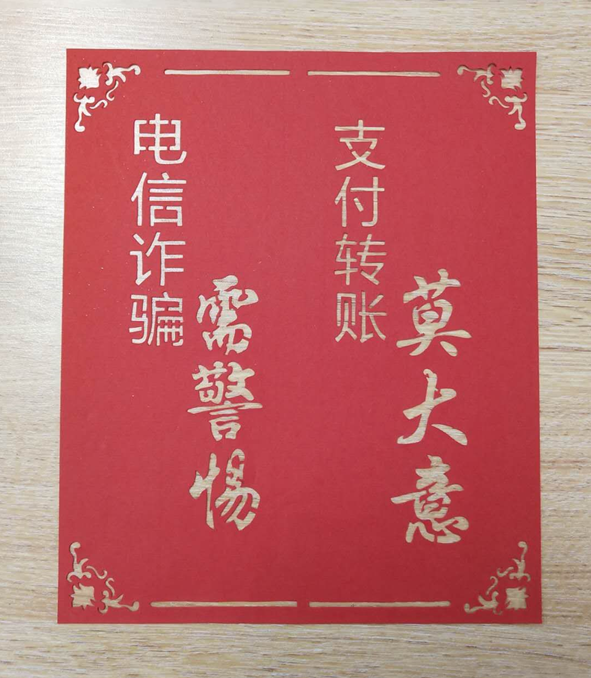 电信诈骗
需警惕
支付转账
莫大意